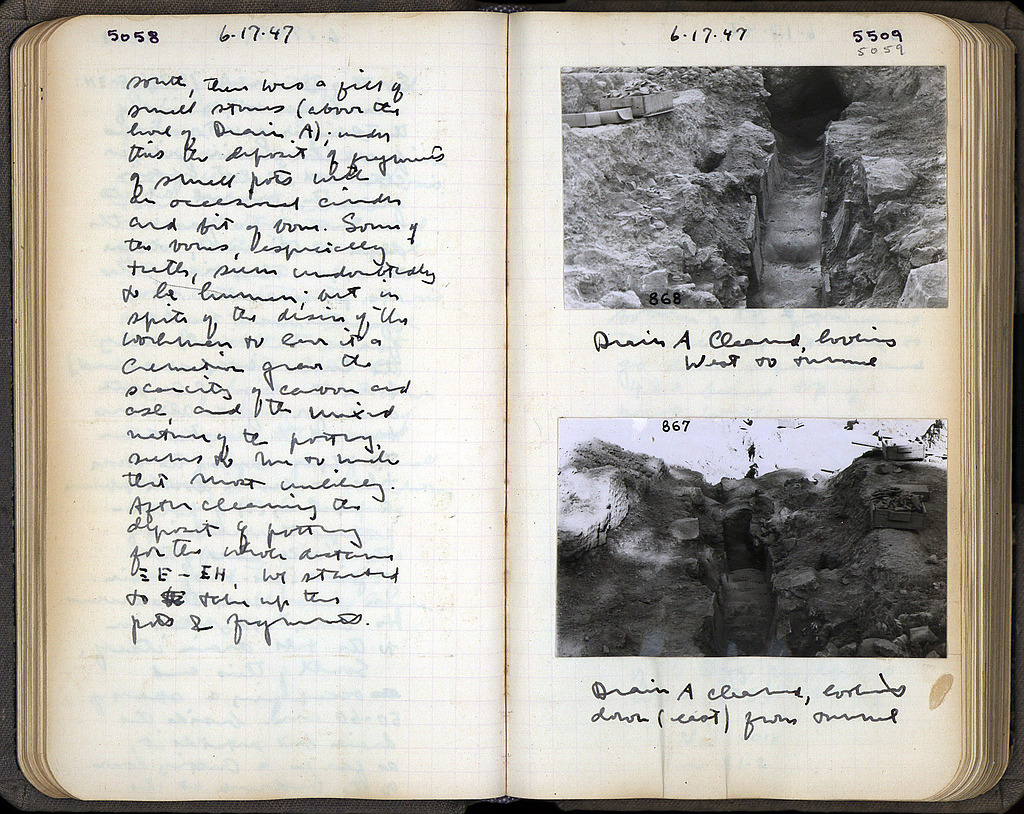 5058
6·17·47
south, there was a fill of
small stones (above the
level of Drain A); under
this the deposit of fragments
of small pots with
an occasional cinder
and bit of bone. Some of
the bones, especially
teeth, seem undoubtedly
to be human; but in
spite of the desire of the
workmen to see it a
cremation grave the
scarcity of carbon and
ash, and the mixed
nature of the pottery,
seems to me to make
that most unlikely
After cleaning the
deposit of pottery
for the whole distance
ΞE – ΞH, we started
to take up the
pots & fragments.
6·17·47
5509
5059
868
Drain A Cleared, looking
West to tunnel
867
Drain A cleared, looking
down (east) from tunnel